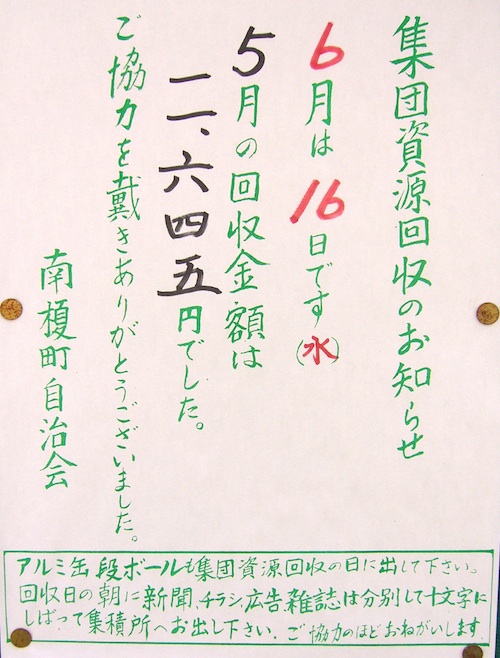 集団資源回収のお知らせ
6月は16日です(水)
5月の回収金額は
一一、六四五円でした。
ご協力を戴きありがとうございました。
南榎町自治会
アルミ缶段ボールも集団資源回収の日に出して下さい。
回収日の朝に新聞、チラシ、広告、雑誌は分別して十文字に
しばって集積所へお出し下さい、ご協力のほどおねがいします